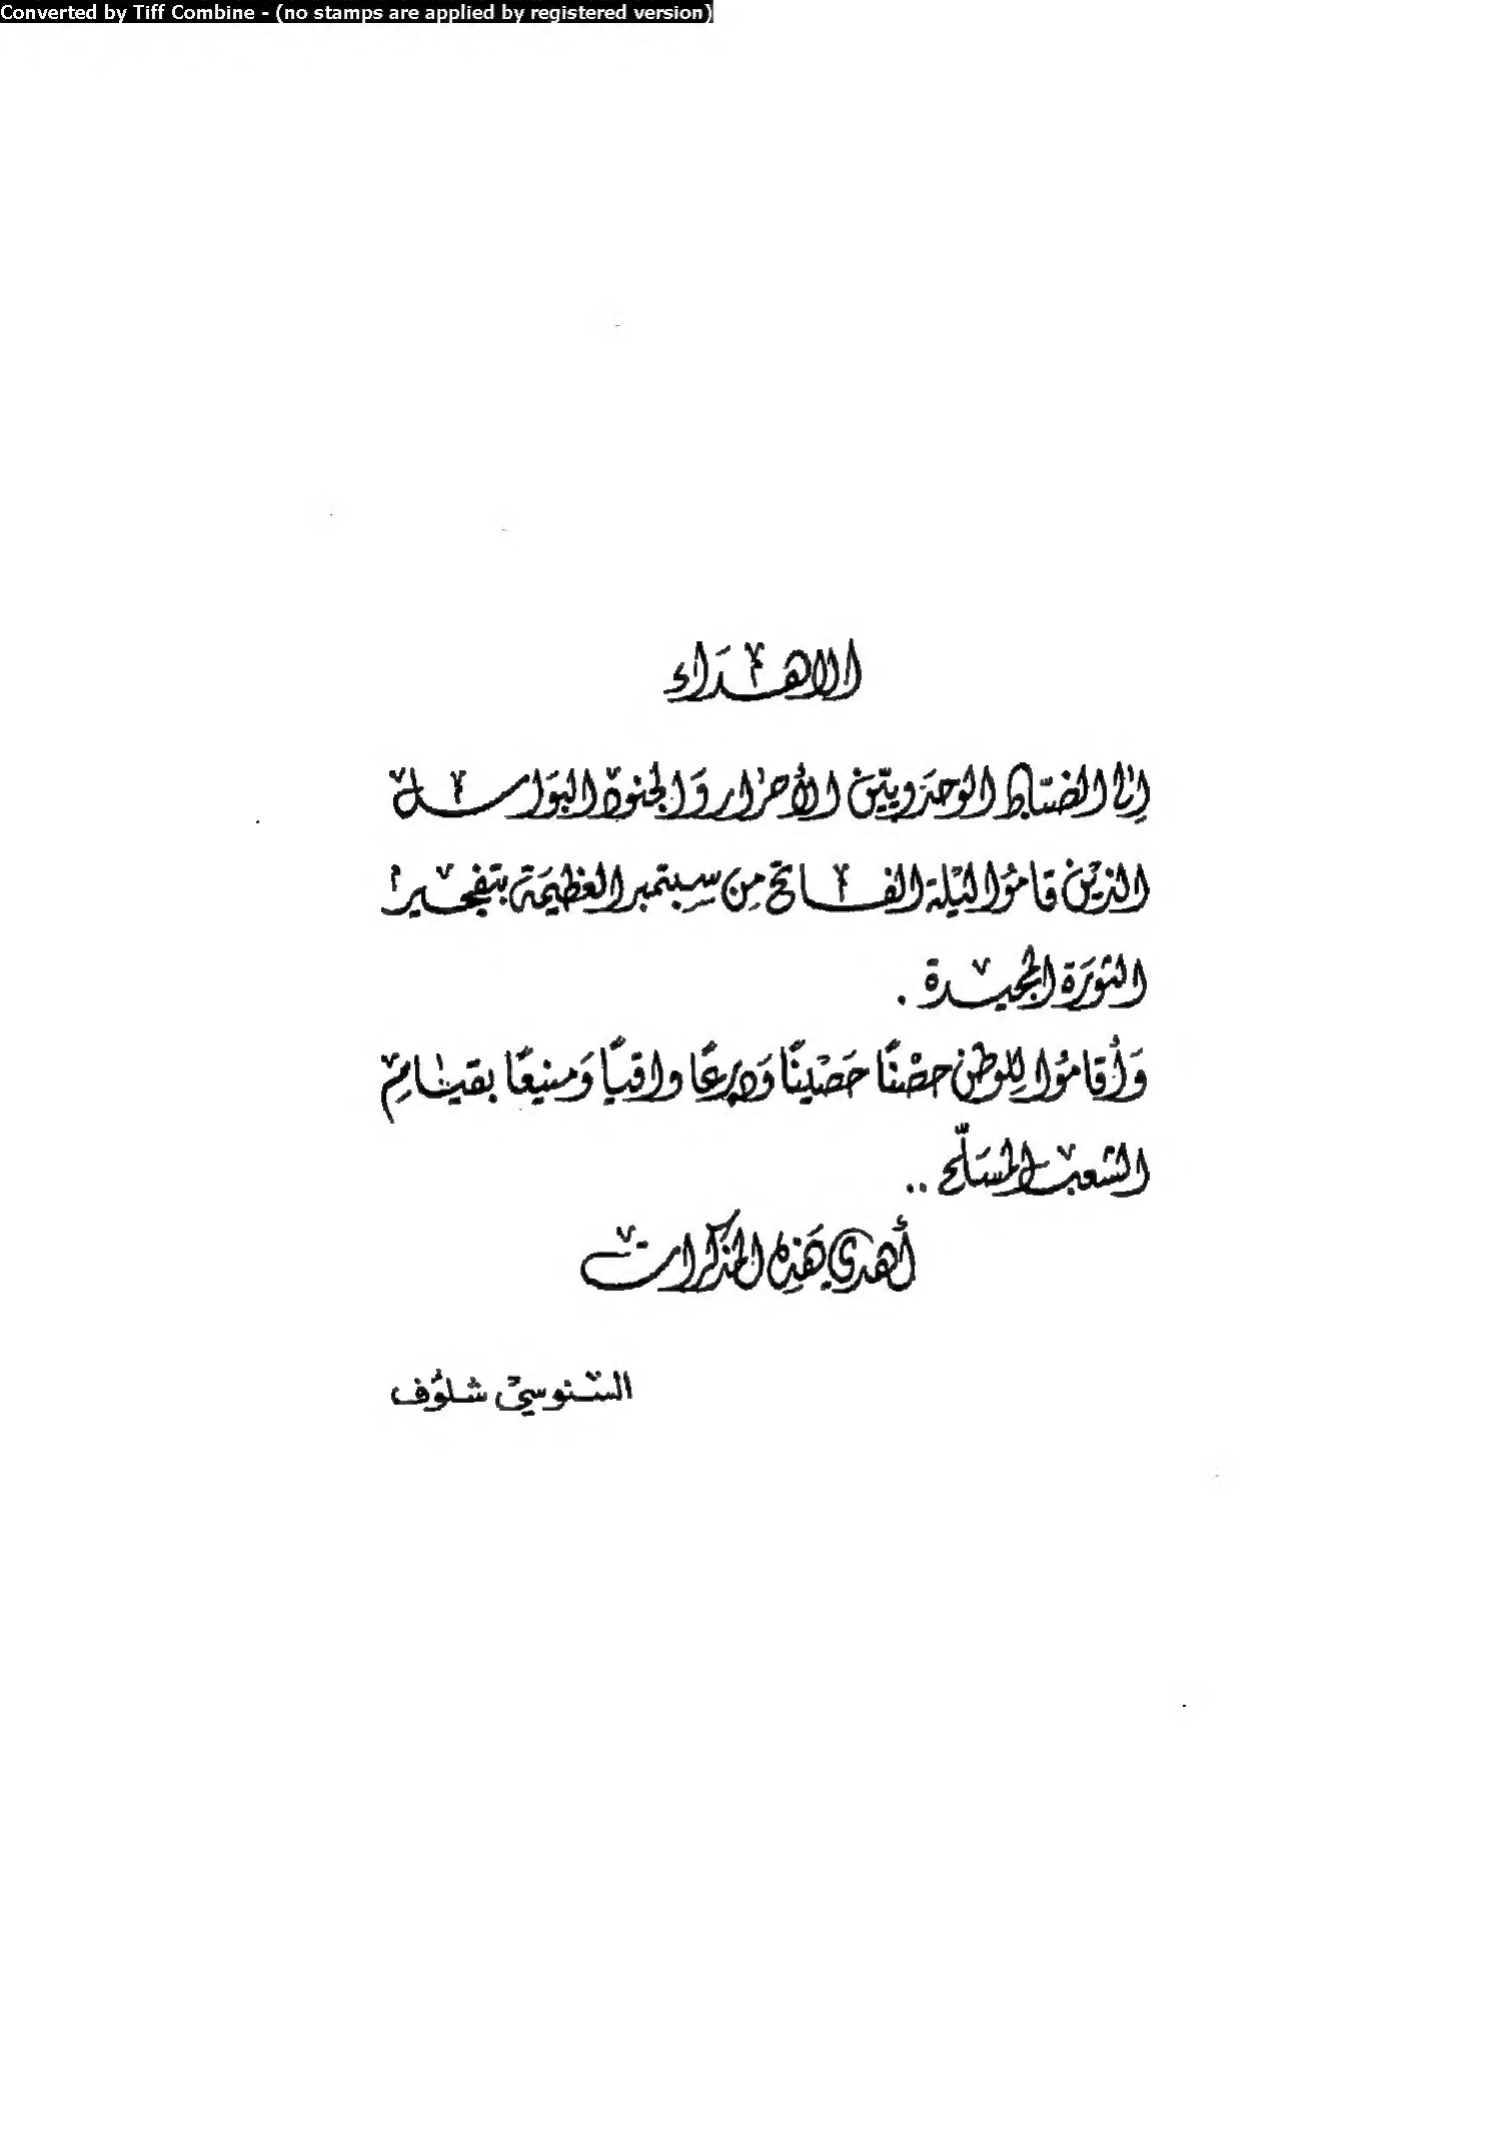 Converted by Tiff Combine - (no stamps are applied by registered version)
الاهداء
إلى الضباط الوحدويين الأحرار والجنود البواسل
الذين قاموا ليلة الفاتح من سبتمبر العظيمة بتفجير
الثورة المجيدة .
وَأقاموا للوطن حصْنًا حَصْينًا وَدِرعًا واقيًا وَمنيعًا بقيام
الشعب المسَلّح ..
أهدي هَذِه المذكرات
السنوسي شلوف